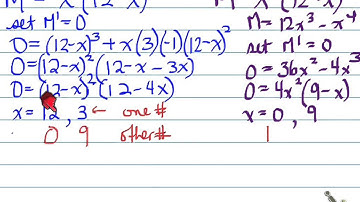 set M' = 0
0 = (12-x)³ + x(3)(-1)(12-x)²
0 = (12-x)²(12-x - 3x)
0 = (12-x)²(12-4x)
x = 12, 3 ← one #
0 9 other #
M = 12x³ - x⁴
set M' = 0
0 = 36x² - 4x³
0 = 4x²(9-x)
x = 0, 9
1